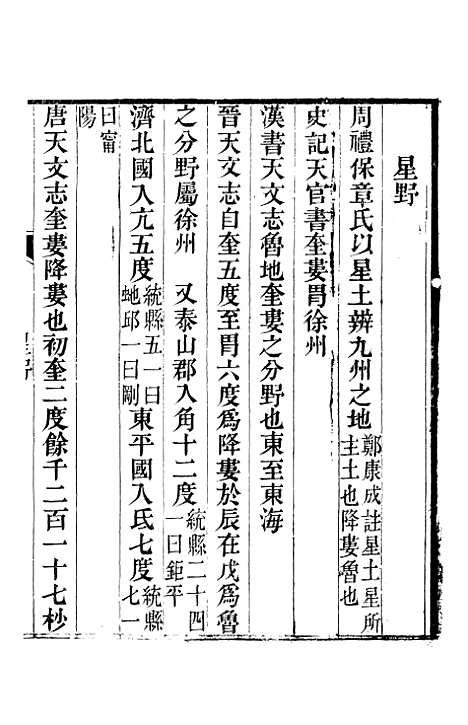 星野
周禮保章氏以星土辨九州之地鄭康成註星土星所主土也降婁魯也
史記天官書奎婁胃徐州
漢書天文志魯地奎婁之分野也東至東海
晉天文志自奎五度至胃六度爲降婁於辰在戌爲魯
之分野屬徐州　又泰山郡入角十二度統縣二十四一曰鉅平
濟北國入亢五度統縣五一曰虵邱一曰剛東平國入氐七度統縣七一
曰甯陽
唐天文志奎婁降婁也初奎二度餘千二百一十七杪